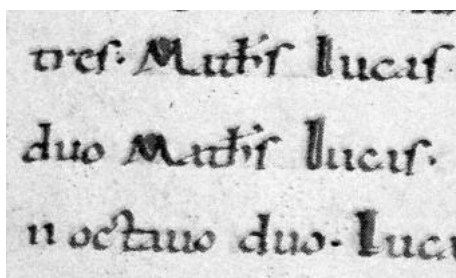 tres· Math's lucas
duo Math's lucas·
n octauo duo· luca